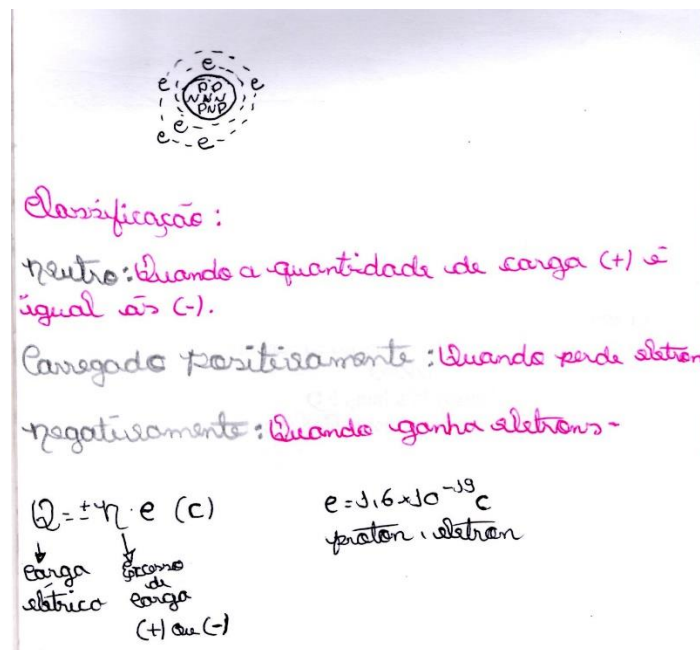 e e e
P P
N N N
P N P
e e
e e
Classificação:
neutro: Quando a quantidade de carga (+) é
igual às (-).
Carregado positivamente: Quando perde eletron
negativamente: Quando ganha eletrons-
Q = ± n · e (C)
e = 1,6 × 10⁻¹⁹ C
proton, eletron
carga Excesso
elétrico de
carga
(+) ou (-)